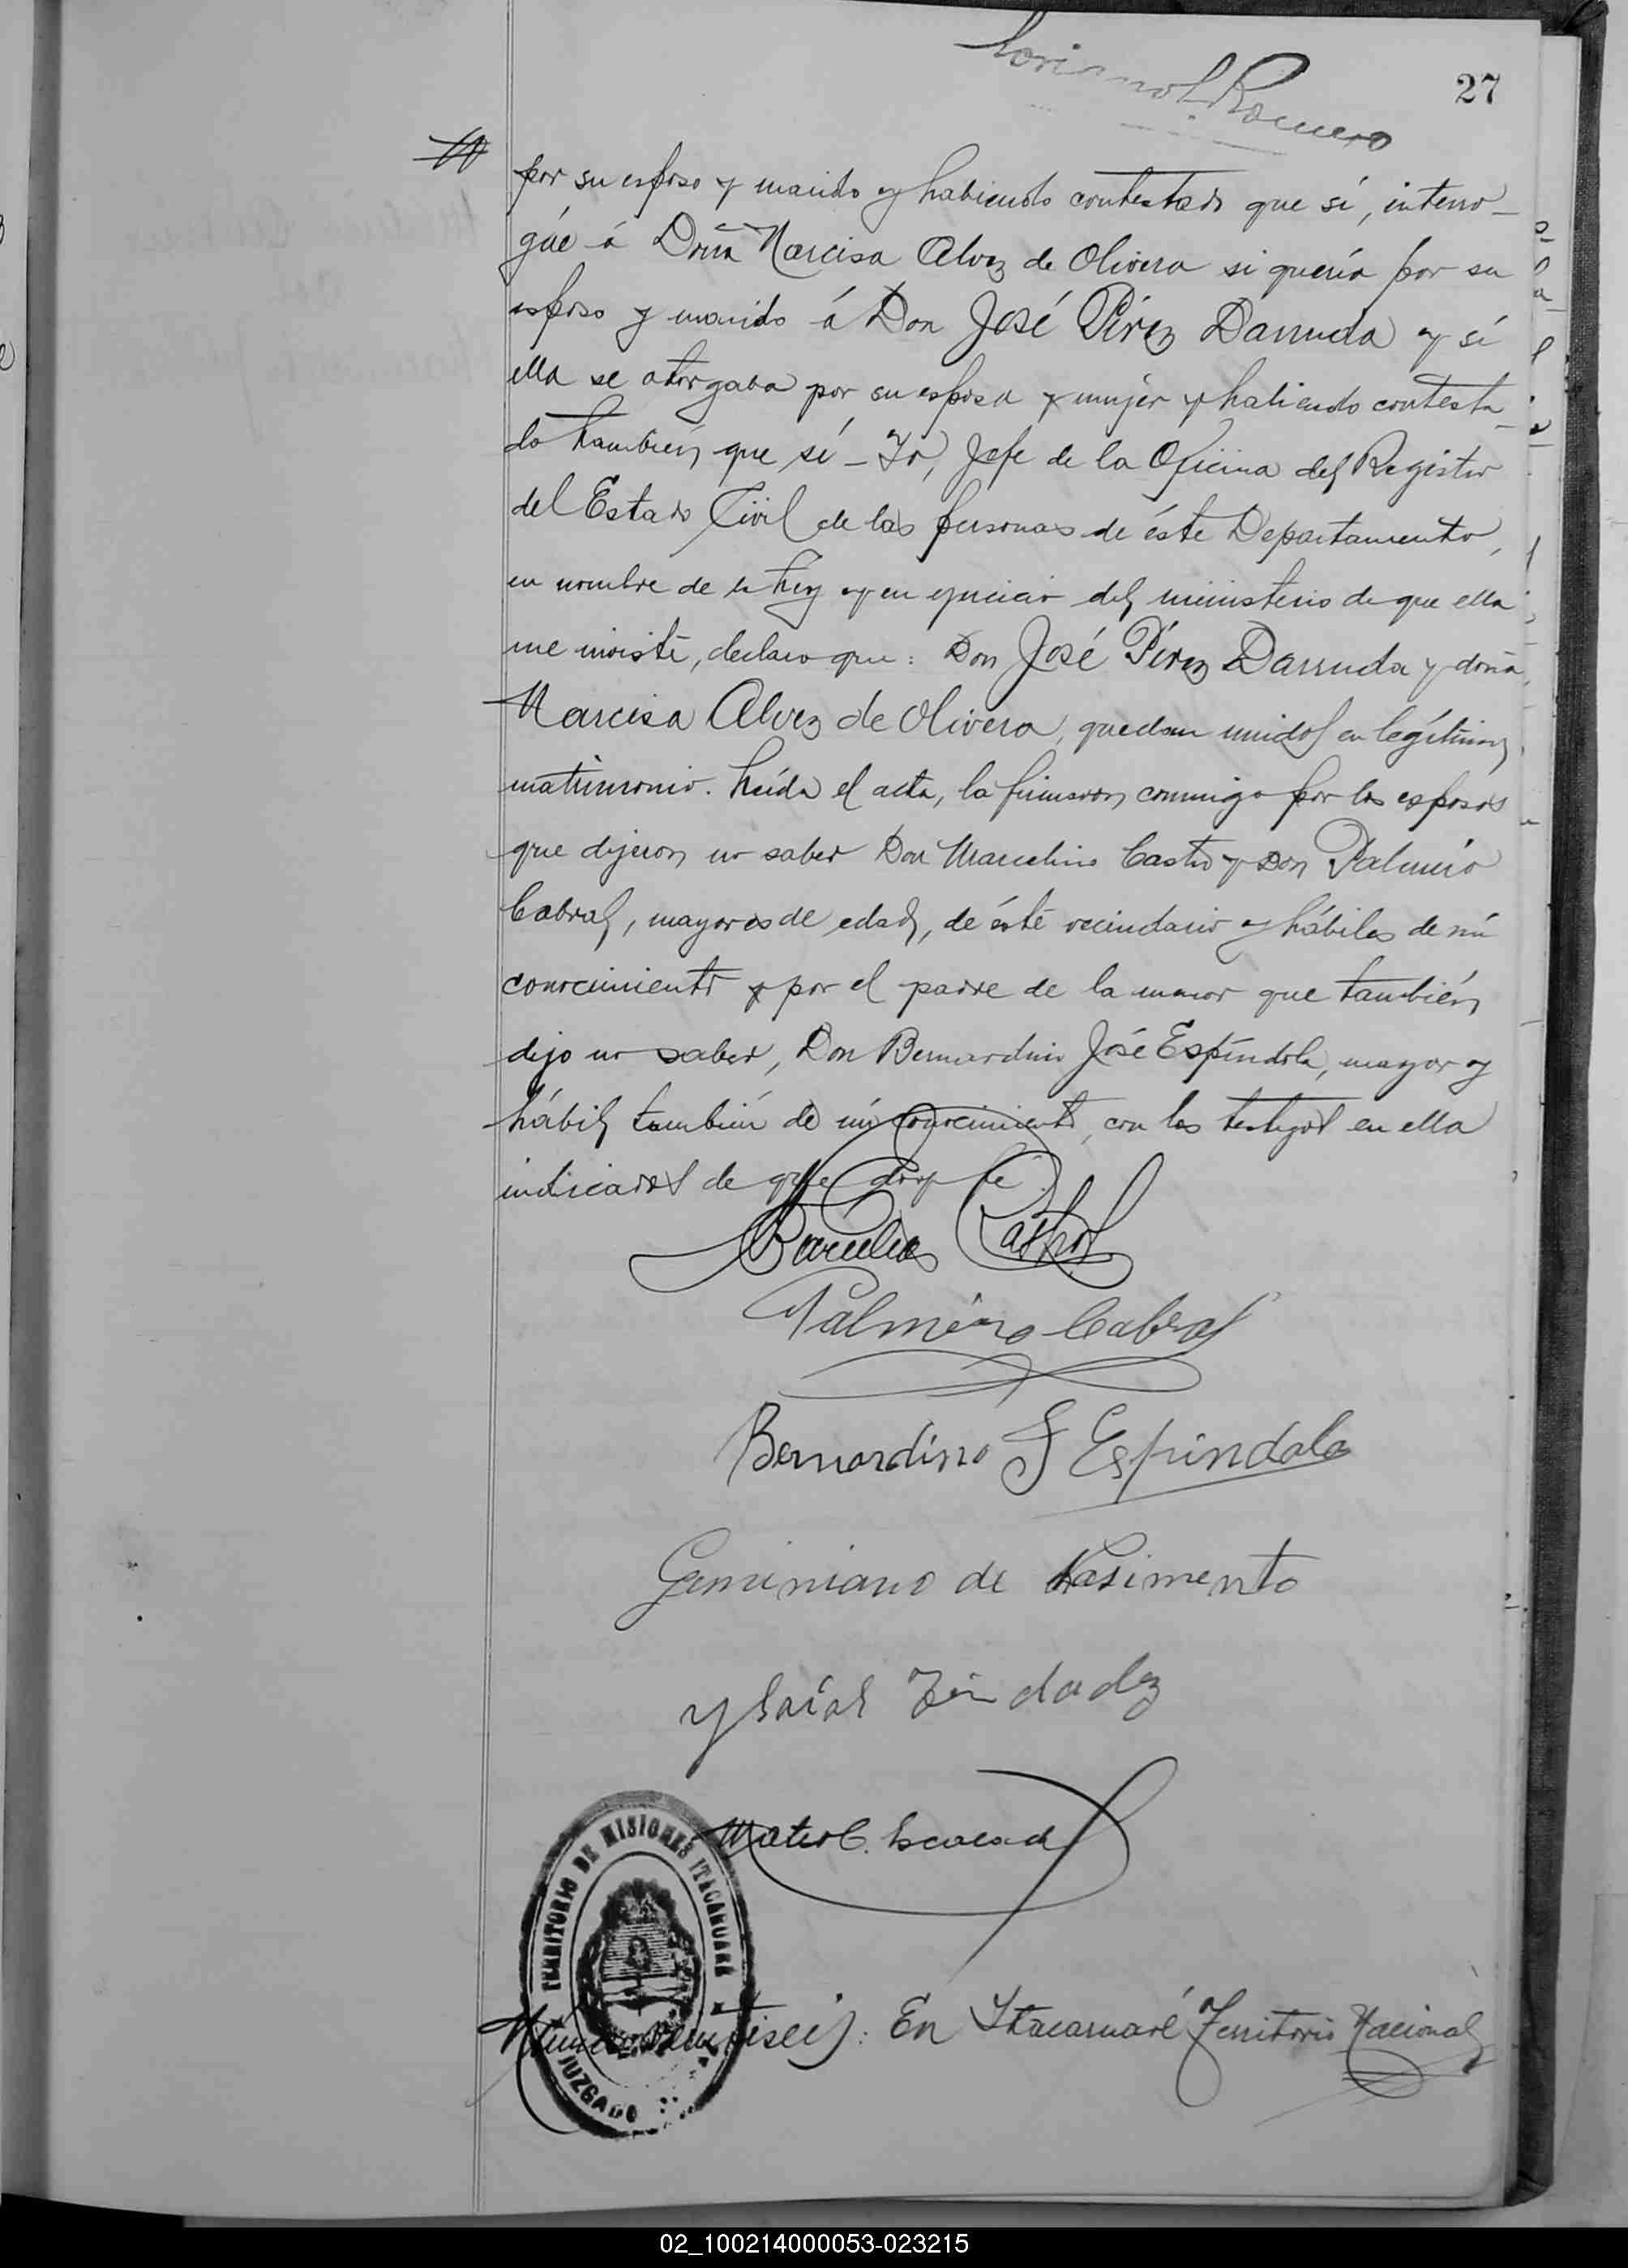 Romero
27
por su esposo y marido y habiendo contestado que sí, interro-
gué á Doña Narcisa Alvez de Olivera si quería por su
esposo y marido á Don José Pirez Darruda y sí
ella se otorgaba por su esposa y mujer y habiendo contesta-
do también que sí - Yo, Jefe de la Oficina del Registro
del Estado Civil de las personas de éste Departamento,
en nombre de la Ley y en ejercicio del ministerio de que ella
me inviste, declaro que: Don José Pirez Darruda y doña
Narcisa Alvez de Olivera, quedan unidos en legítimo
matrimonio. Leída el acta, la firmaron conmigo por los esposos
que dijeron no saber Don Marcelino Castro y Don Palmiro
Cabral, mayores de edad, de éste vecindario y hábiles de mi
conocimiento y por el padre de la menor que también
dijo no saber, Don Bernardino José Espíndola, mayor y
hábil también de mi conocimiento, con los testigos en ella
indicados de que doy fé.
Marcelino Castro
Palmiro Cabral
Bernardino J Espindola
Geminiano de Nasimento
Ysaías
Mateo C.
TERRITORIO DE MISIONES ITACARUARE
JUZGADO
Número veintiseis: En Itacaruaré Territorio Nacional
02_100214000053-023215